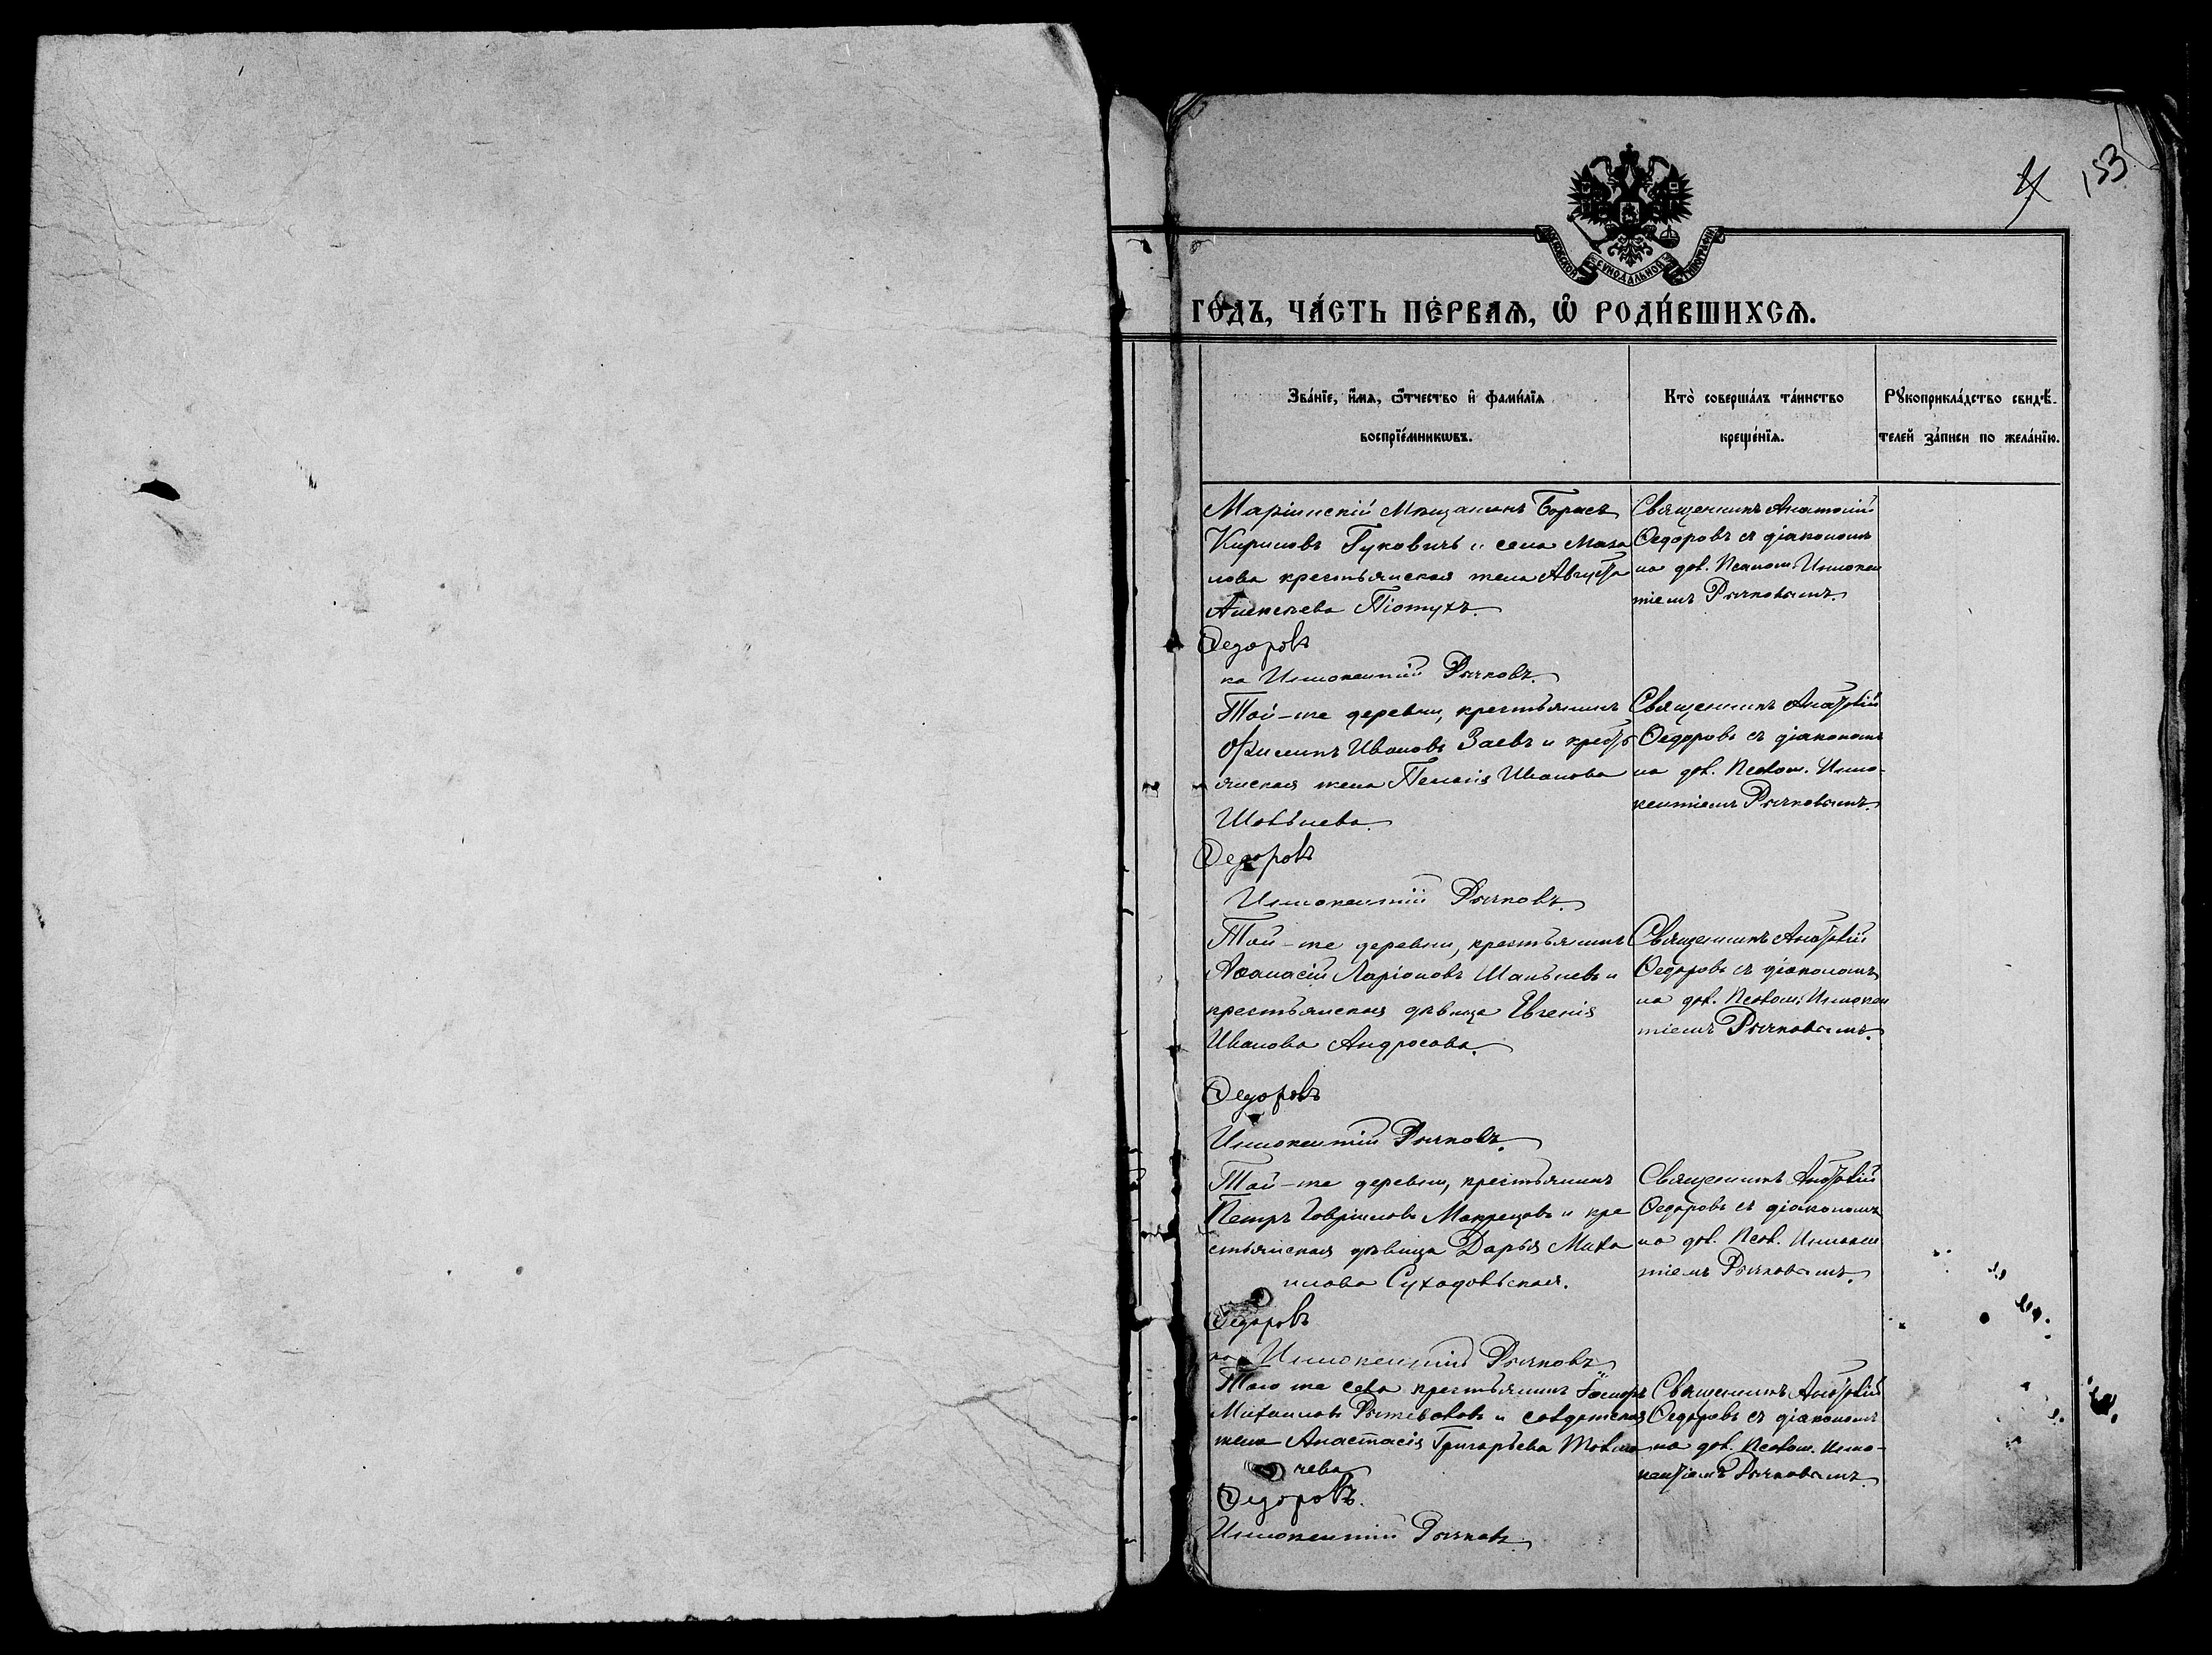 153
МОСКОВСКОЙ СѴНОДАЛЬНОЙ ТИПОГРАФІИ
ГО́ДЪ, ЧА́СТЬ ПЕ́РВАѦ, Ѽ РОДИ́ВШИХСѦ.
Зва́нїе, и҆́мѧ, ѻ҆́тчество и҆ фами́лїѧ
воспрїе́мникѡвъ.
Кто̀ соверша́лъ та́инство
креще́нїѧ.
Рꙋкоприкла́дство свидѣ́-
телей за́писи по жела́нїю.
Маріинскій мѣщанинъ Борисъ
Кириловъ Гуковичъ и села
крестьянская жена Августа
Алексѣева Піотухъ.
Ѳедоровъ
Иннокентій Рычковъ.
Священникъ Анатолій
Ѳедоровъ съ діакономъ
на дол. Псалом. Иннокен
тіемъ Рычковымъ.
Той-же деревни, крестьянинъ
Иванов Заевъ и кресть
янская жена Пелагія Иванова
Ѳедоровъ
Иннокентій Рычковъ.
Священникъ Анатолій
Ѳедоровъ съ діакономъ
на дол. Псалом. Инно-
кентіемъ Рычковымъ.
Той-же деревни, крестьянинъ
Аѳанасій Ларіоновъ и
крестьянская дѣвица Евгенія
Иванова Андросова.
Ѳедоровъ
Иннокентій Рычковъ.
Священникъ Анатолій
Ѳедоровъ съ діакономъ
на дол. Псалом. Иннокен
тіемъ Рычковымъ.
Той-же деревни, крестьянинъ
Петръ Гавріиловъ и кре
стьянская дѣвица Дарья Миха
илова Суходольская.
Ѳедоровъ
Иннокентій Рычковъ.
Священникъ Анатолій
Ѳедоровъ съ діакономъ
на дол. Псал. Иннокен
тіемъ Рычковымъ.
Того же села крестьянинъ
Михаиловъ и солдатская
жена Анастасія Григорьева Толма
чева
Ѳедоровъ.
Иннокентій Рычковъ.
Священникъ Анатолій
Ѳедоровъ съ діакономъ
на дол. Псалом. Инно-
кентіемъ Рычковымъ.